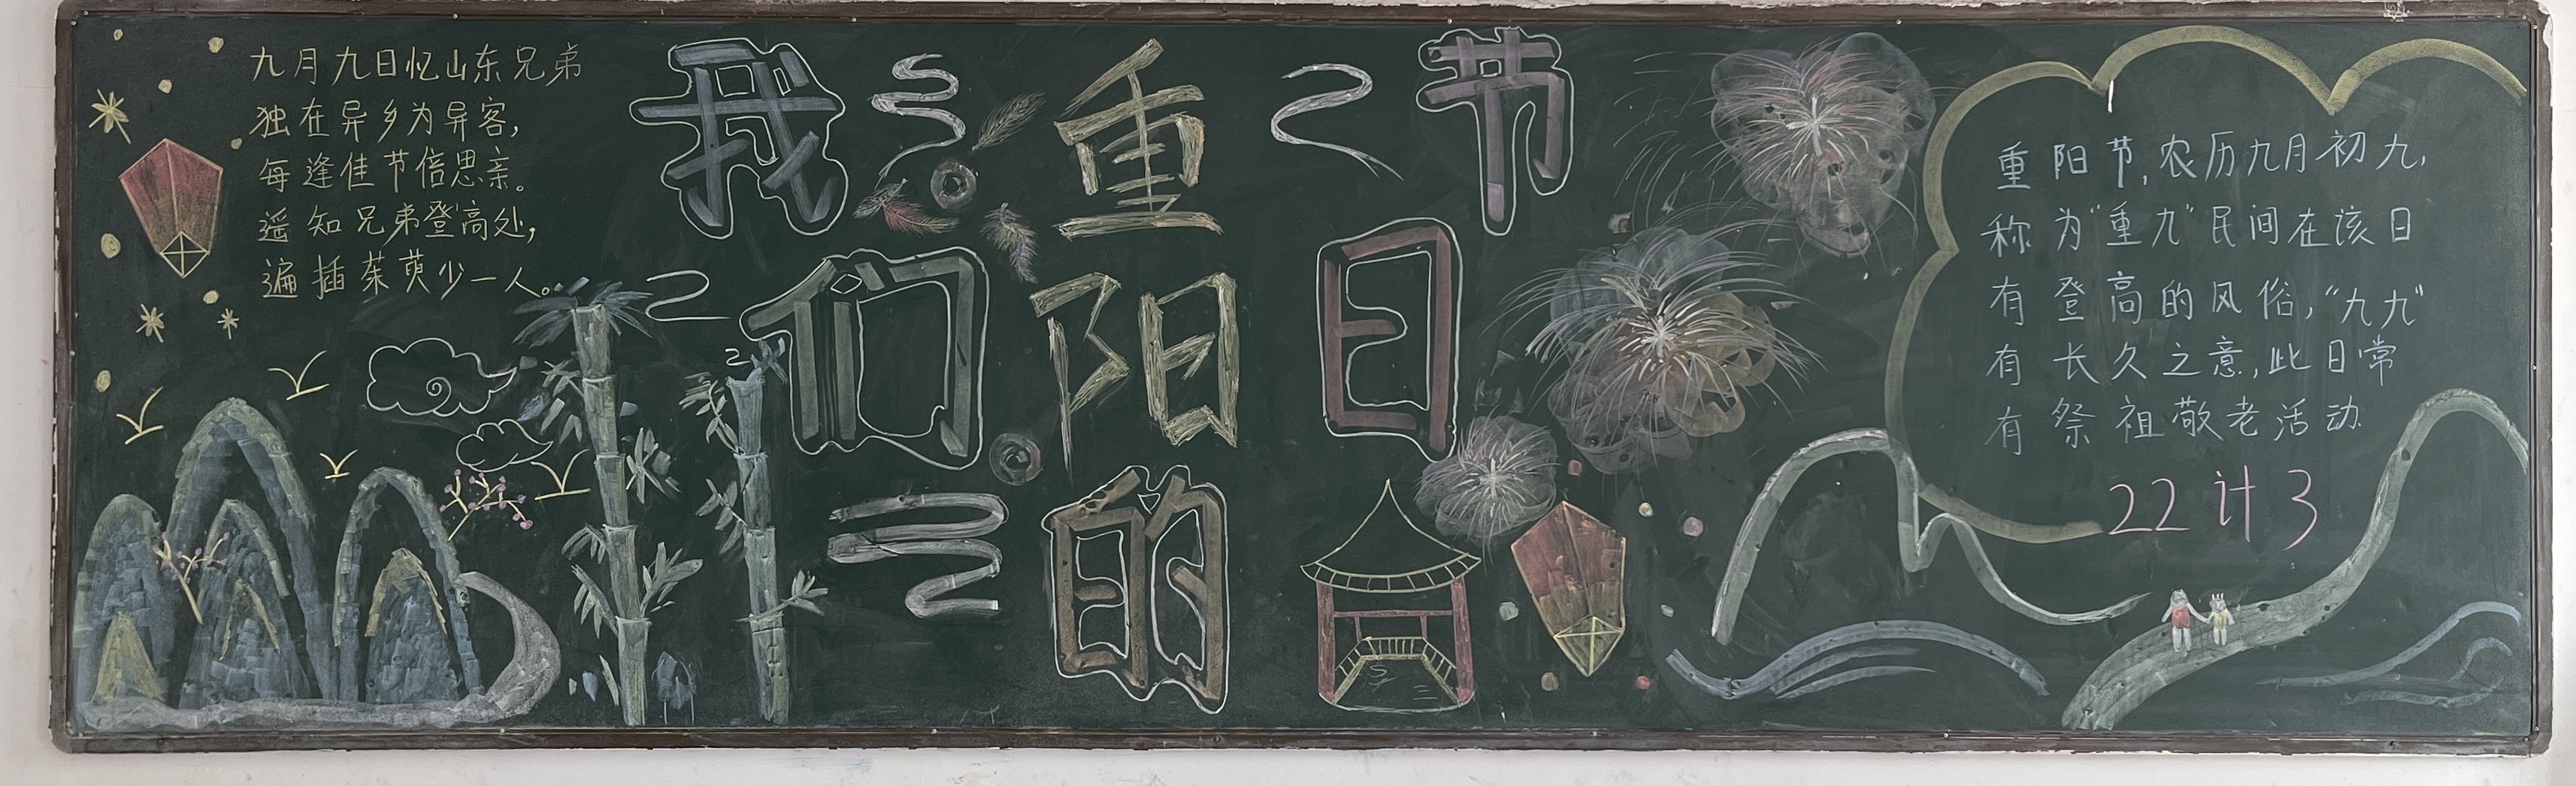 九月九日忆山东兄弟
独在异乡为异客，
每逢佳节倍思亲。
遥知兄弟登高处，
遍插茱萸少一人。
我们的
节日
重阳
重阳节，农历九月初九，
称为“重九”民间在该日
有登高的风俗，“九九”
有长久之意，此日常
有祭祖敬老活动
22计3